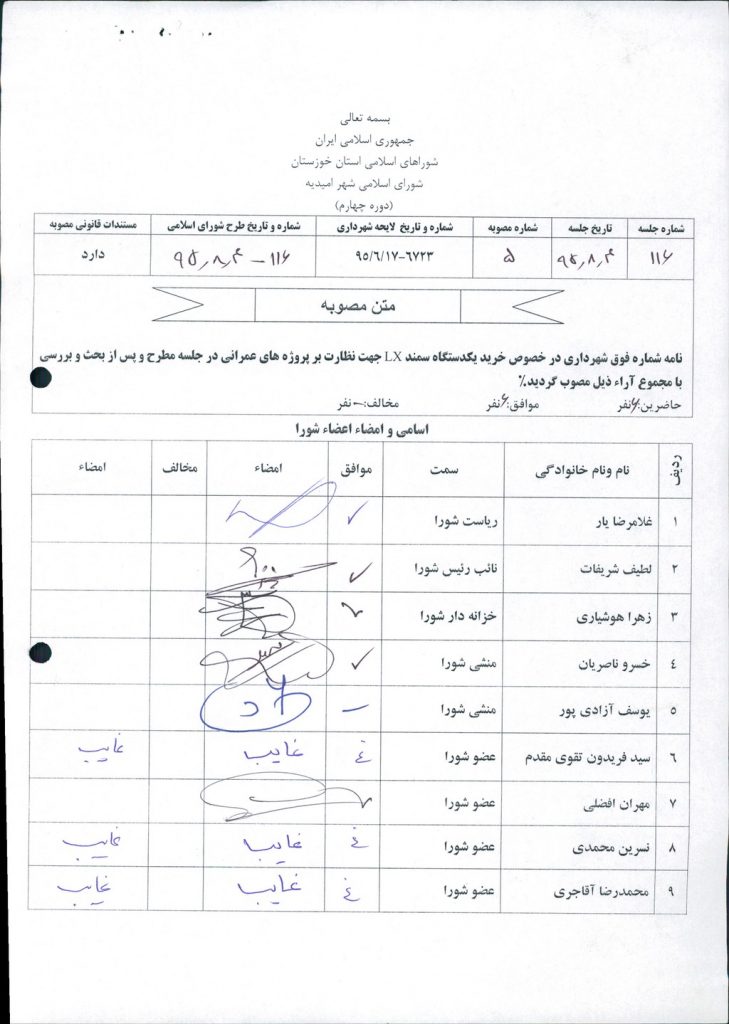 بسمه تعالی
جمهوری اسلامی ایران
شوراهای اسلامی استان خوزستان
شورای اسلامی شهر امیدیه
(دوره چهارم)
شماره جلسه تاریخ جلسه شماره مصوبه شماره و تاریخ لایحه شهرداری شماره و تاریخ طرح شورای اسلامی مستندات قانونی مصوبه
۱۱۶ ۹۵٫۸٫۴ ۵ ۹۵/۶/۱۷-۶۷۲۳ ۱۱۶ – ۹۵٫۸٫۴ دارد
متن مصوبه
نامه شماره فوق شهرداری در خصوص خرید یکدستگاه سمند LX جهت نظارت بر پروژه های عمرانی در جلسه مطرح و پس از بحث و بررسی
با مجموع آراء ذیل مصوب گردید.٪
حاضرین:۶نفر موافق:۶نفر مخالف:-نفر
اسامی و امضاء اعضاء شورا
ردیف نام ونام خانوادگی سمت موافق امضاء مخالف امضاء
۱ غلامرضا یار ریاست شورا ✓
۲ لطیف شریفات نائب رئیس شورا ✓
۳ زهرا هوشیاری خزانه دار شورا ✓
٤ خسرو ناصریان منشی شورا ✓
۵ یوسف آزادی پور منشی شورا –
٦ سید فریدون تقوی مقدم عضو شورا غ غایب غایب
۷ مهران افضلی عضو شورا ✓
۸ نسرین محمدی عضو شورا غ غایب غایب
۹ محمدرضا آقاجری عضو شورا غ غایب غایب